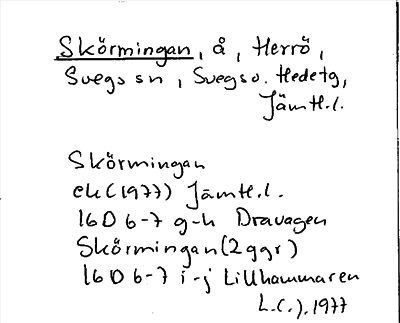 Skörmingan, å, Herrö,
Svegs sn, Svegs o. Hedetg,
Jämtl.l.
Skörmingan
ek (1977) Jämtl.l.
16D 6-7 g-h Dravagen
Skörmingan (2 ggr)
16D 6-7 i-j Lillhammaren
L.C.). 1977